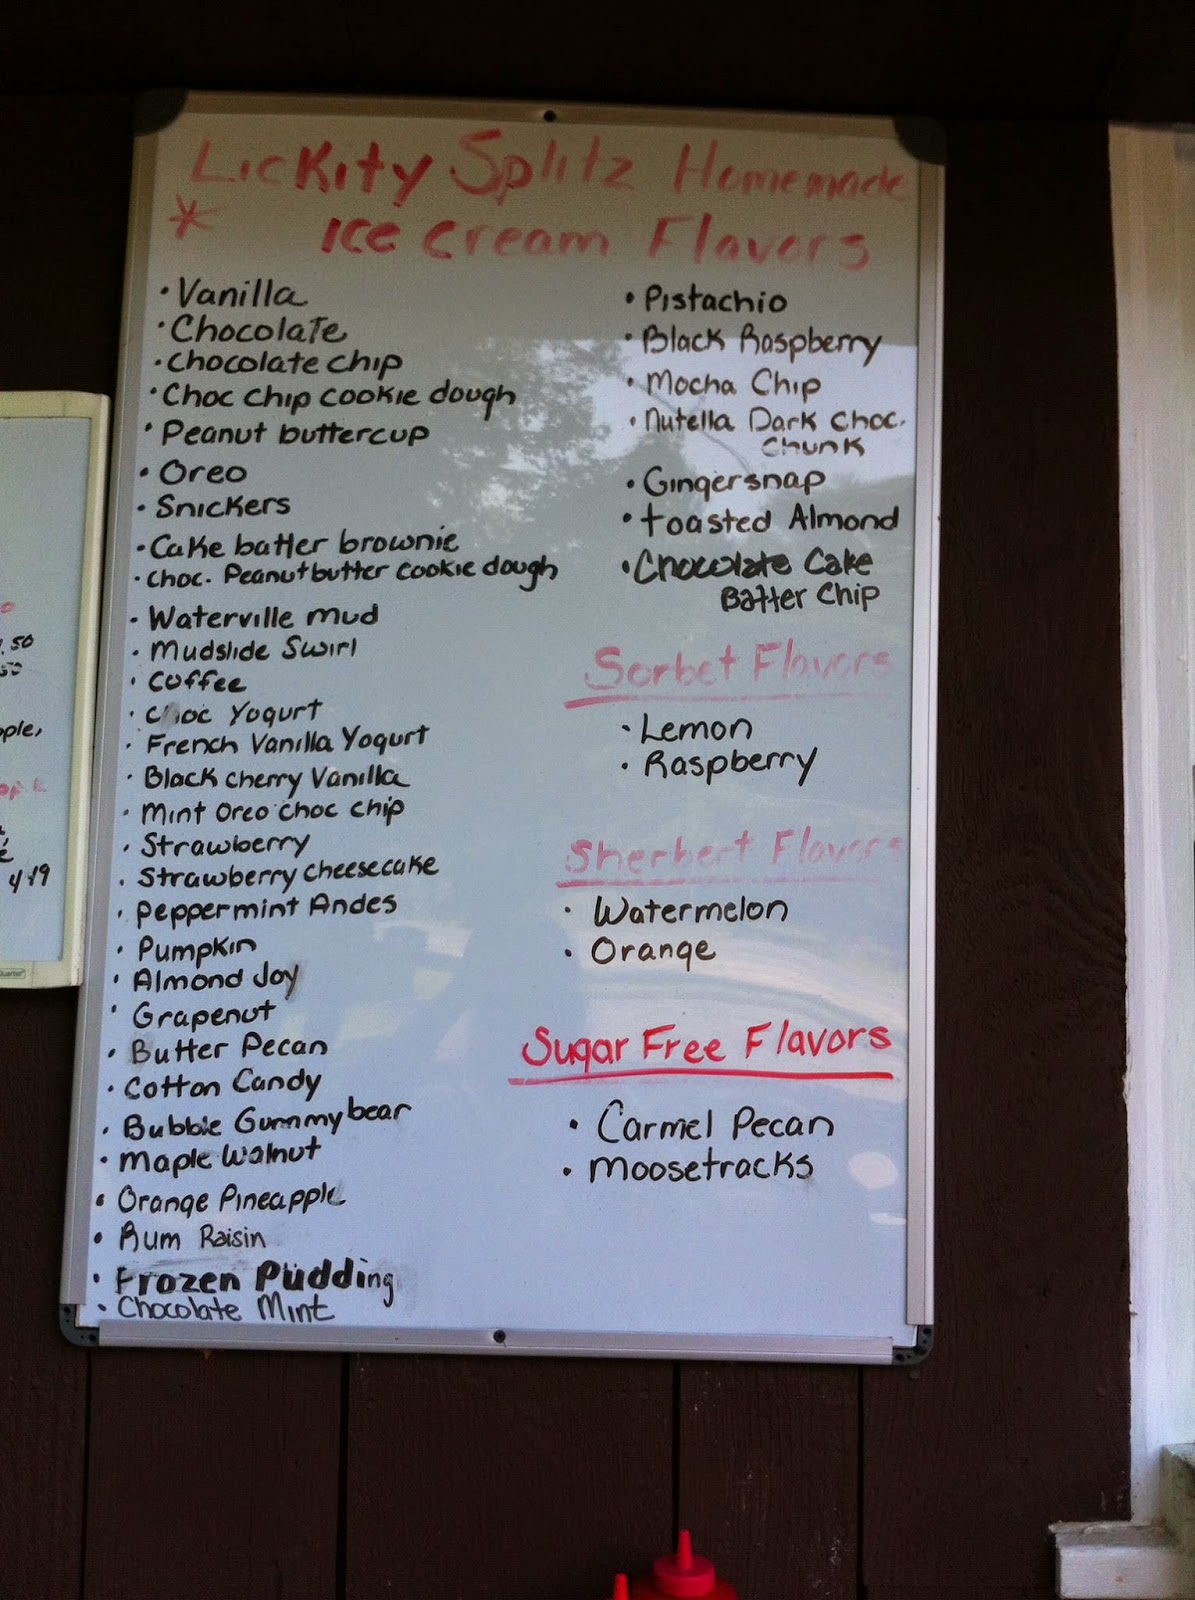 Lickity Splitz Homemade
* Ice Cream Flavors
• Vanilla
• Chocolate
• Chocolate chip
• Choc chip cookie dough
• Peanut buttercup
• Oreo
• Snickers
• Cake batter brownie
• Choc. Peanutbutter cookie dough
• Waterville mud
• Mudslide Swirl
• Coffee
• Choc Yogurt
• French Vanilla Yogurt
• Black cherry Vanilla
• Mint Oreo choc chip
• Strawberry
• Strawberry Cheesecake
• Peppermint Andes
• Pumpkin
• Almond Joy
• Grapenut
• Butter Pecan
• Cotton Candy
• Bubble Gummybear
• Maple Walnut
• Orange Pineapple
• Rum Raisin
• Frozen Pudding
• Chocolate Mint
• Pistachio
• Black Raspberry
• Mocha Chip
• Nutella Dark Choc.
Chunk
• Gingersnap
• Toasted Almond
• Chocolate Cake
Batter Chip
Sorbet Flavors
• Lemon
• Raspberry
Sherbert Flavors
• Watermelon
• Orange
Sugar Free Flavors
• Carmel Pecan
• Moosetracks
.50
50
ple,
4.19
Quartet